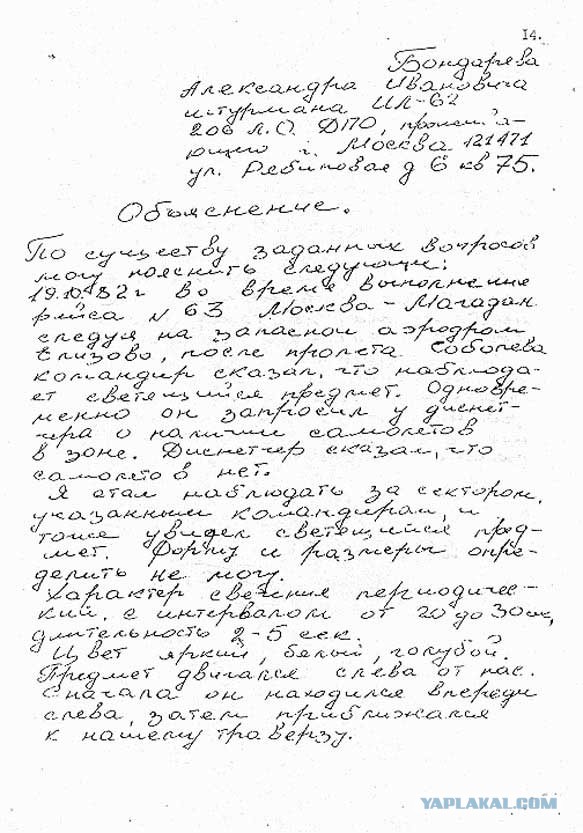 14.
Бондарева
Александра Ивановича
штурмана ИЛ-62
206 Л.О. ДПО, прожив а-
ющего г. Москва 121471
ул. Рябиновая д 6 кв 75.
Объяснение.
По существу заданных вопросов
могу пояснить следующее:
19.10.82г во время выполнения
рейса N 63 Москва - Магадан
следуя на запасной аэродром
Елизово, после пролета Соболева
командир сказал, что наблюда-
ет светящийся предмет. Одновре-
менно он запросил у диспет-
чера о наличии самолетов
в зоне. Диспетчер сказал, что
самолетов нет.
Я стал наблюдать за сектором,
указанным командиром, и
тоже увидел светящийся пред-
мет. Форму и размеры опре-
делить не могу.
Характер свечения периодичес-
кий, с интервалом от 20 до 30 сек,
длительность 2-5 сек.
Цвет яркий, белый, голубой.
Предмет двигался слева от нас.
Сначала он находился впереди
слева, затем приближался
к нашему траверзу.
YAPLAKAL.COM